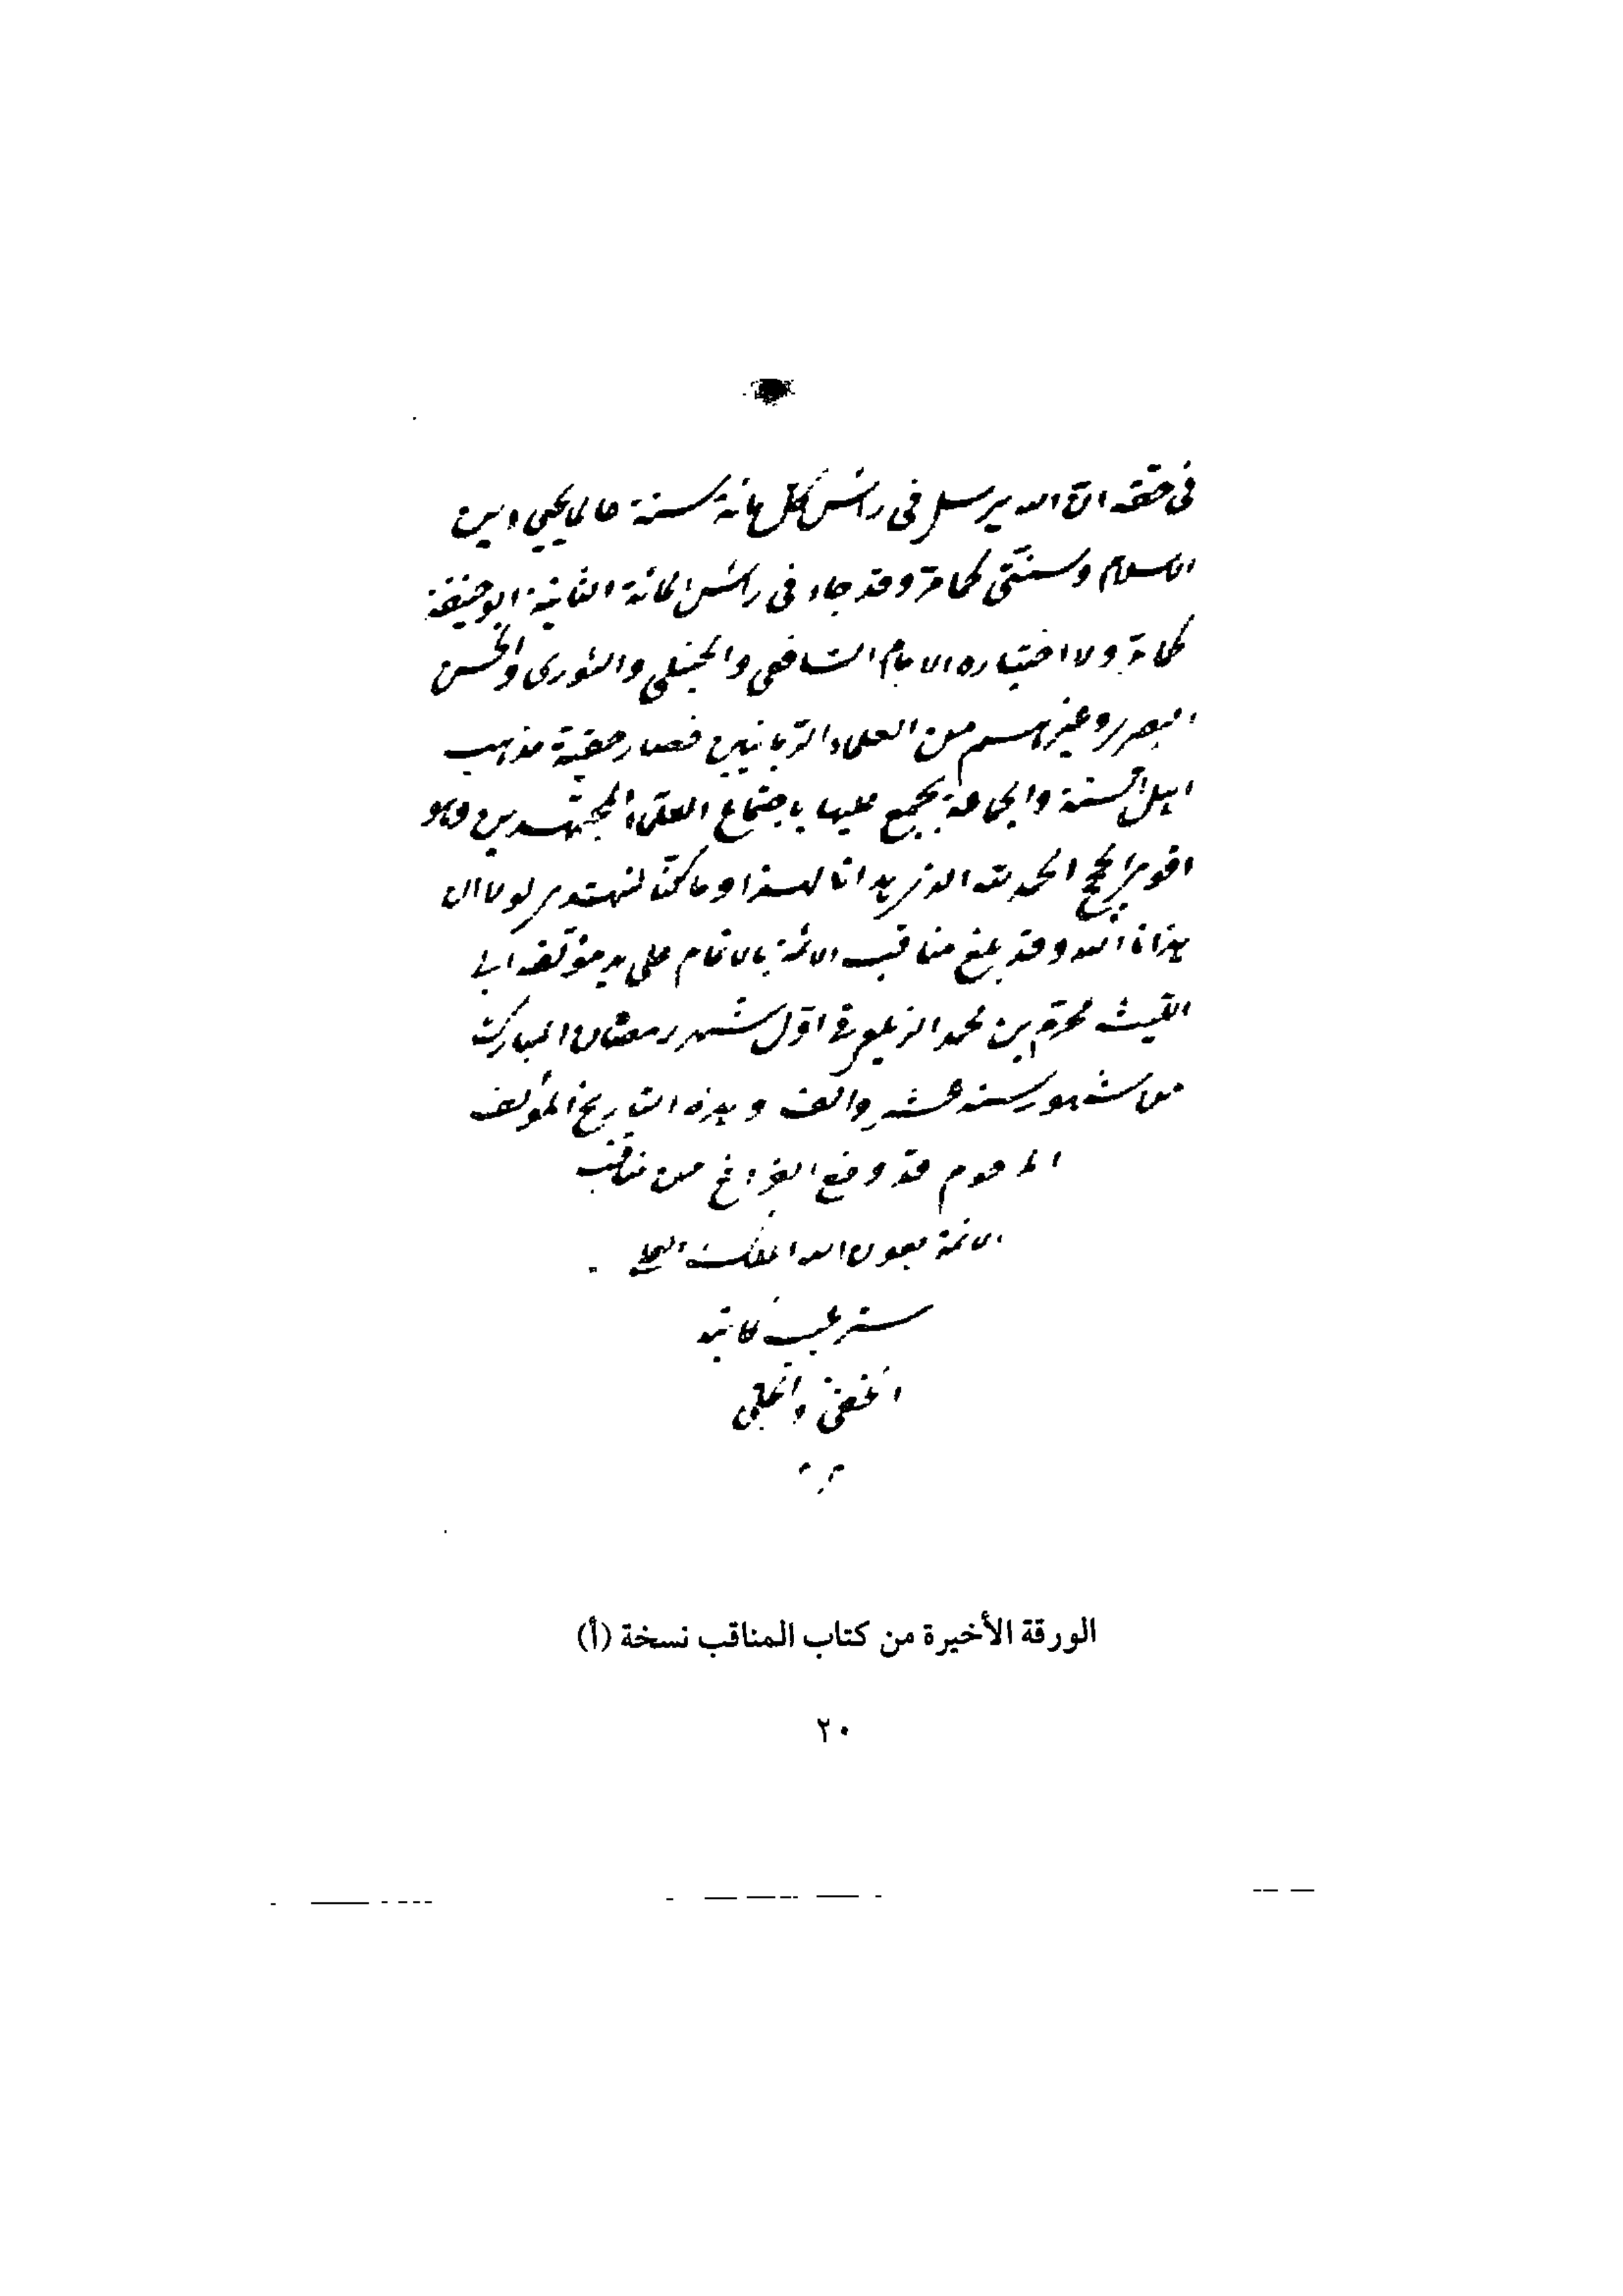 فى حقه ان الله يرسل فى رأس كل مائة سنة عالما يحيي دين
الاسلام وسنتى كما مرّ وقد جاء فى رأس المائة الثانية ابو حنيفة
كما مرّ ولا اختياره الامام الشافعى والحنبلى والثورى والحسن
البصرى وغيرهم من العلماء الربانيين فصار حقية مذهب
اهل السنة والجماعة يجمع عليها باجتماع العلماء المجتهدين وهو
اقوى الحجج الحمد لله الذى هدانا لهذا وما كنا لنهتدى لولا ان
هدانا الله وقد بلغ مناقب الائمة بالاتمام على يد مؤلفه ابى
الليث محرّم بن محمد الزيلعى فى اوّل شهر رمضان المبارك
من شهور سنة عشر والف وبهذه التاريخ المؤلف
المرحوم قد وقع الفراغ من مناقب
الائمة بعون الله الملك
ستر عيب كاتبه
الخفى والجلى
الورقة الأخيرة من كتاب المناقب نسخة (أ)
٢٠